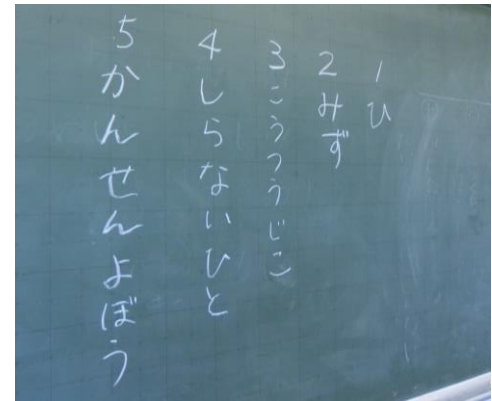 1ひ
2みず
3こうつうじこ
4しらないひと
5かんせんよぼう